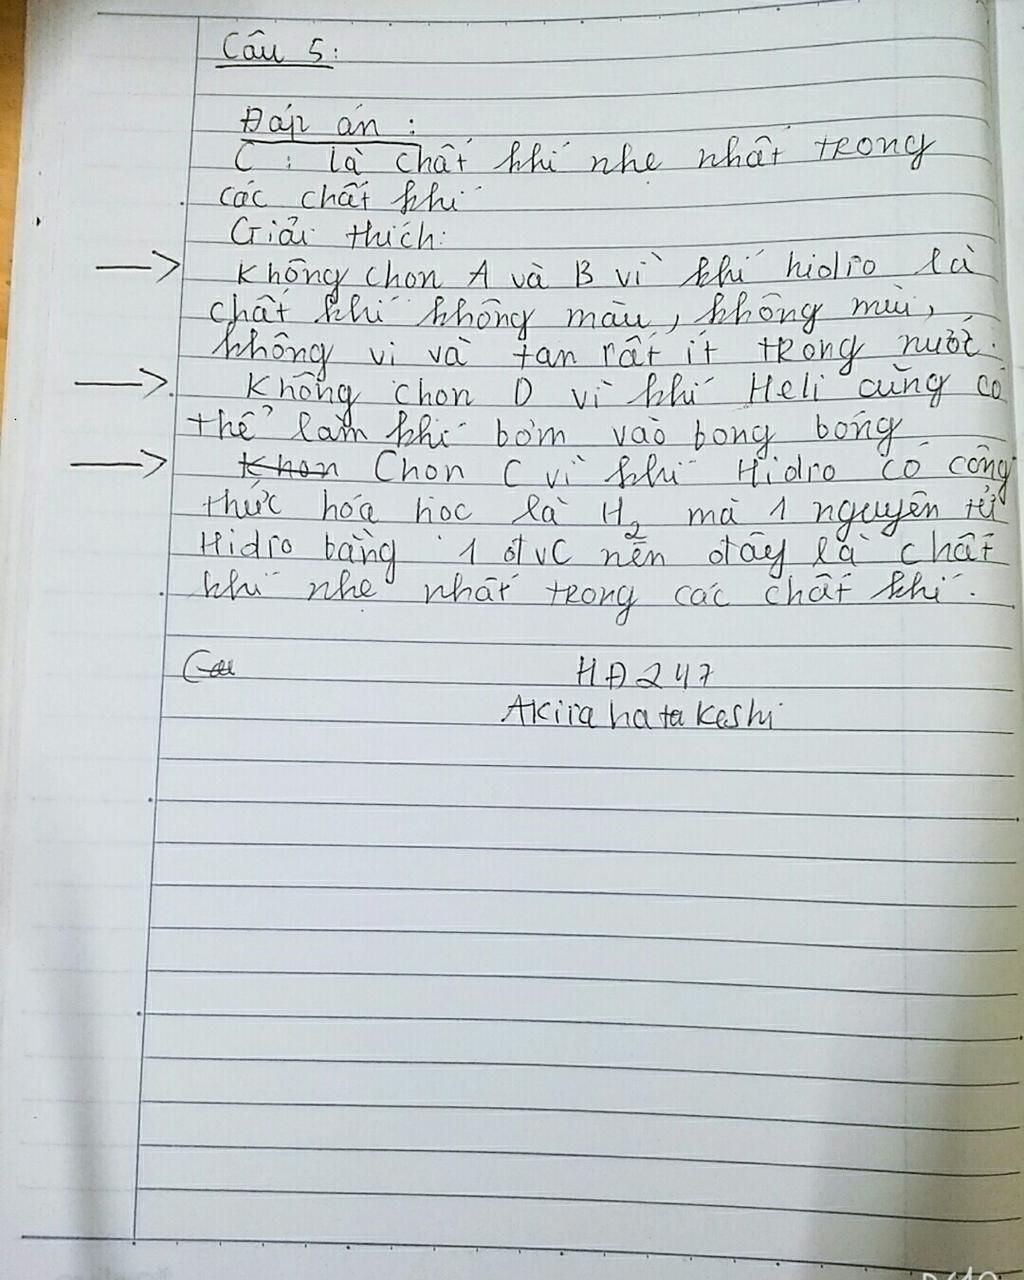 Câu 5:
Đáp án :
C : là chất khí nhẹ nhất trong
các chất khí
Giải thích:
Không chọn A và B vì khí hidro là
chất khí không màu, không mùi,
không vị và tan rất ít trong nước.
Không chọn D vì khí Heli cũng có
thể làm khí bơm vào bong bóng
Khon Chọn C vì khí Hidro có công
thức hóa học là H₂ mà 1 nguyên tử
Hidro bằng 1 đvC nên đây là chất
khí nhẹ nhất trong các chất khí.
HĐ247
Akirahatakeshi